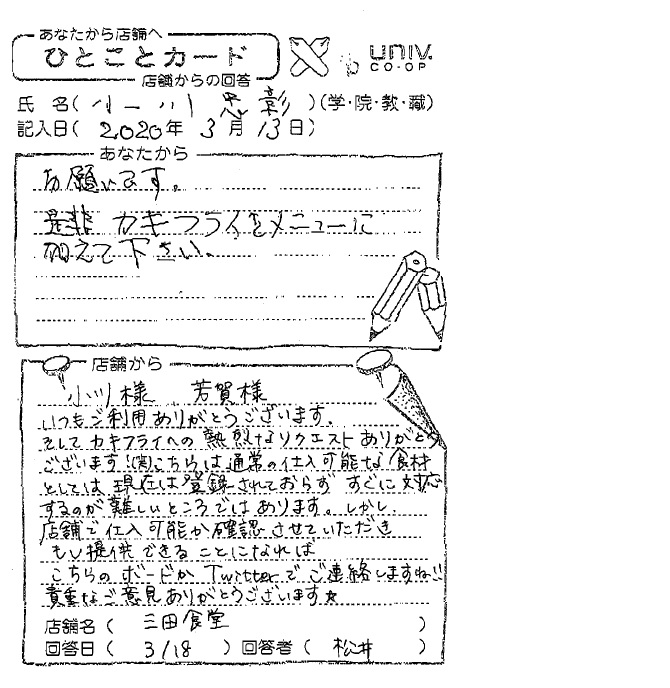 あなたから店舗へ
ひとことカード
univ.
CO-OP
店舗からの回答
氏 名( 小川 忠彰 )(学・院・教・職)
記入日( 2020年 3月 13日)
あなたから
お願いします。
是非 カキフライをメニューに
加えて下さい。
店舗から
小川様 芳賀様
いつもご利用ありがとうございます。
そしてカキフライへの熱烈なリクエストありがとう
ございます!(笑)こちらは通常の仕入可能な食材
としては 現在は登録されておらず すぐに対応
するのが難しいところではあります。しかし、
店舗で仕入可能か確認させていただき
もし提供できることになれば
こちらのボードかTwitterでご連絡しますね!!
貴重なご意見ありがとうございます☆
店舗名( 三田食堂 )
回答日( 3/18 )回答者( 松井 )